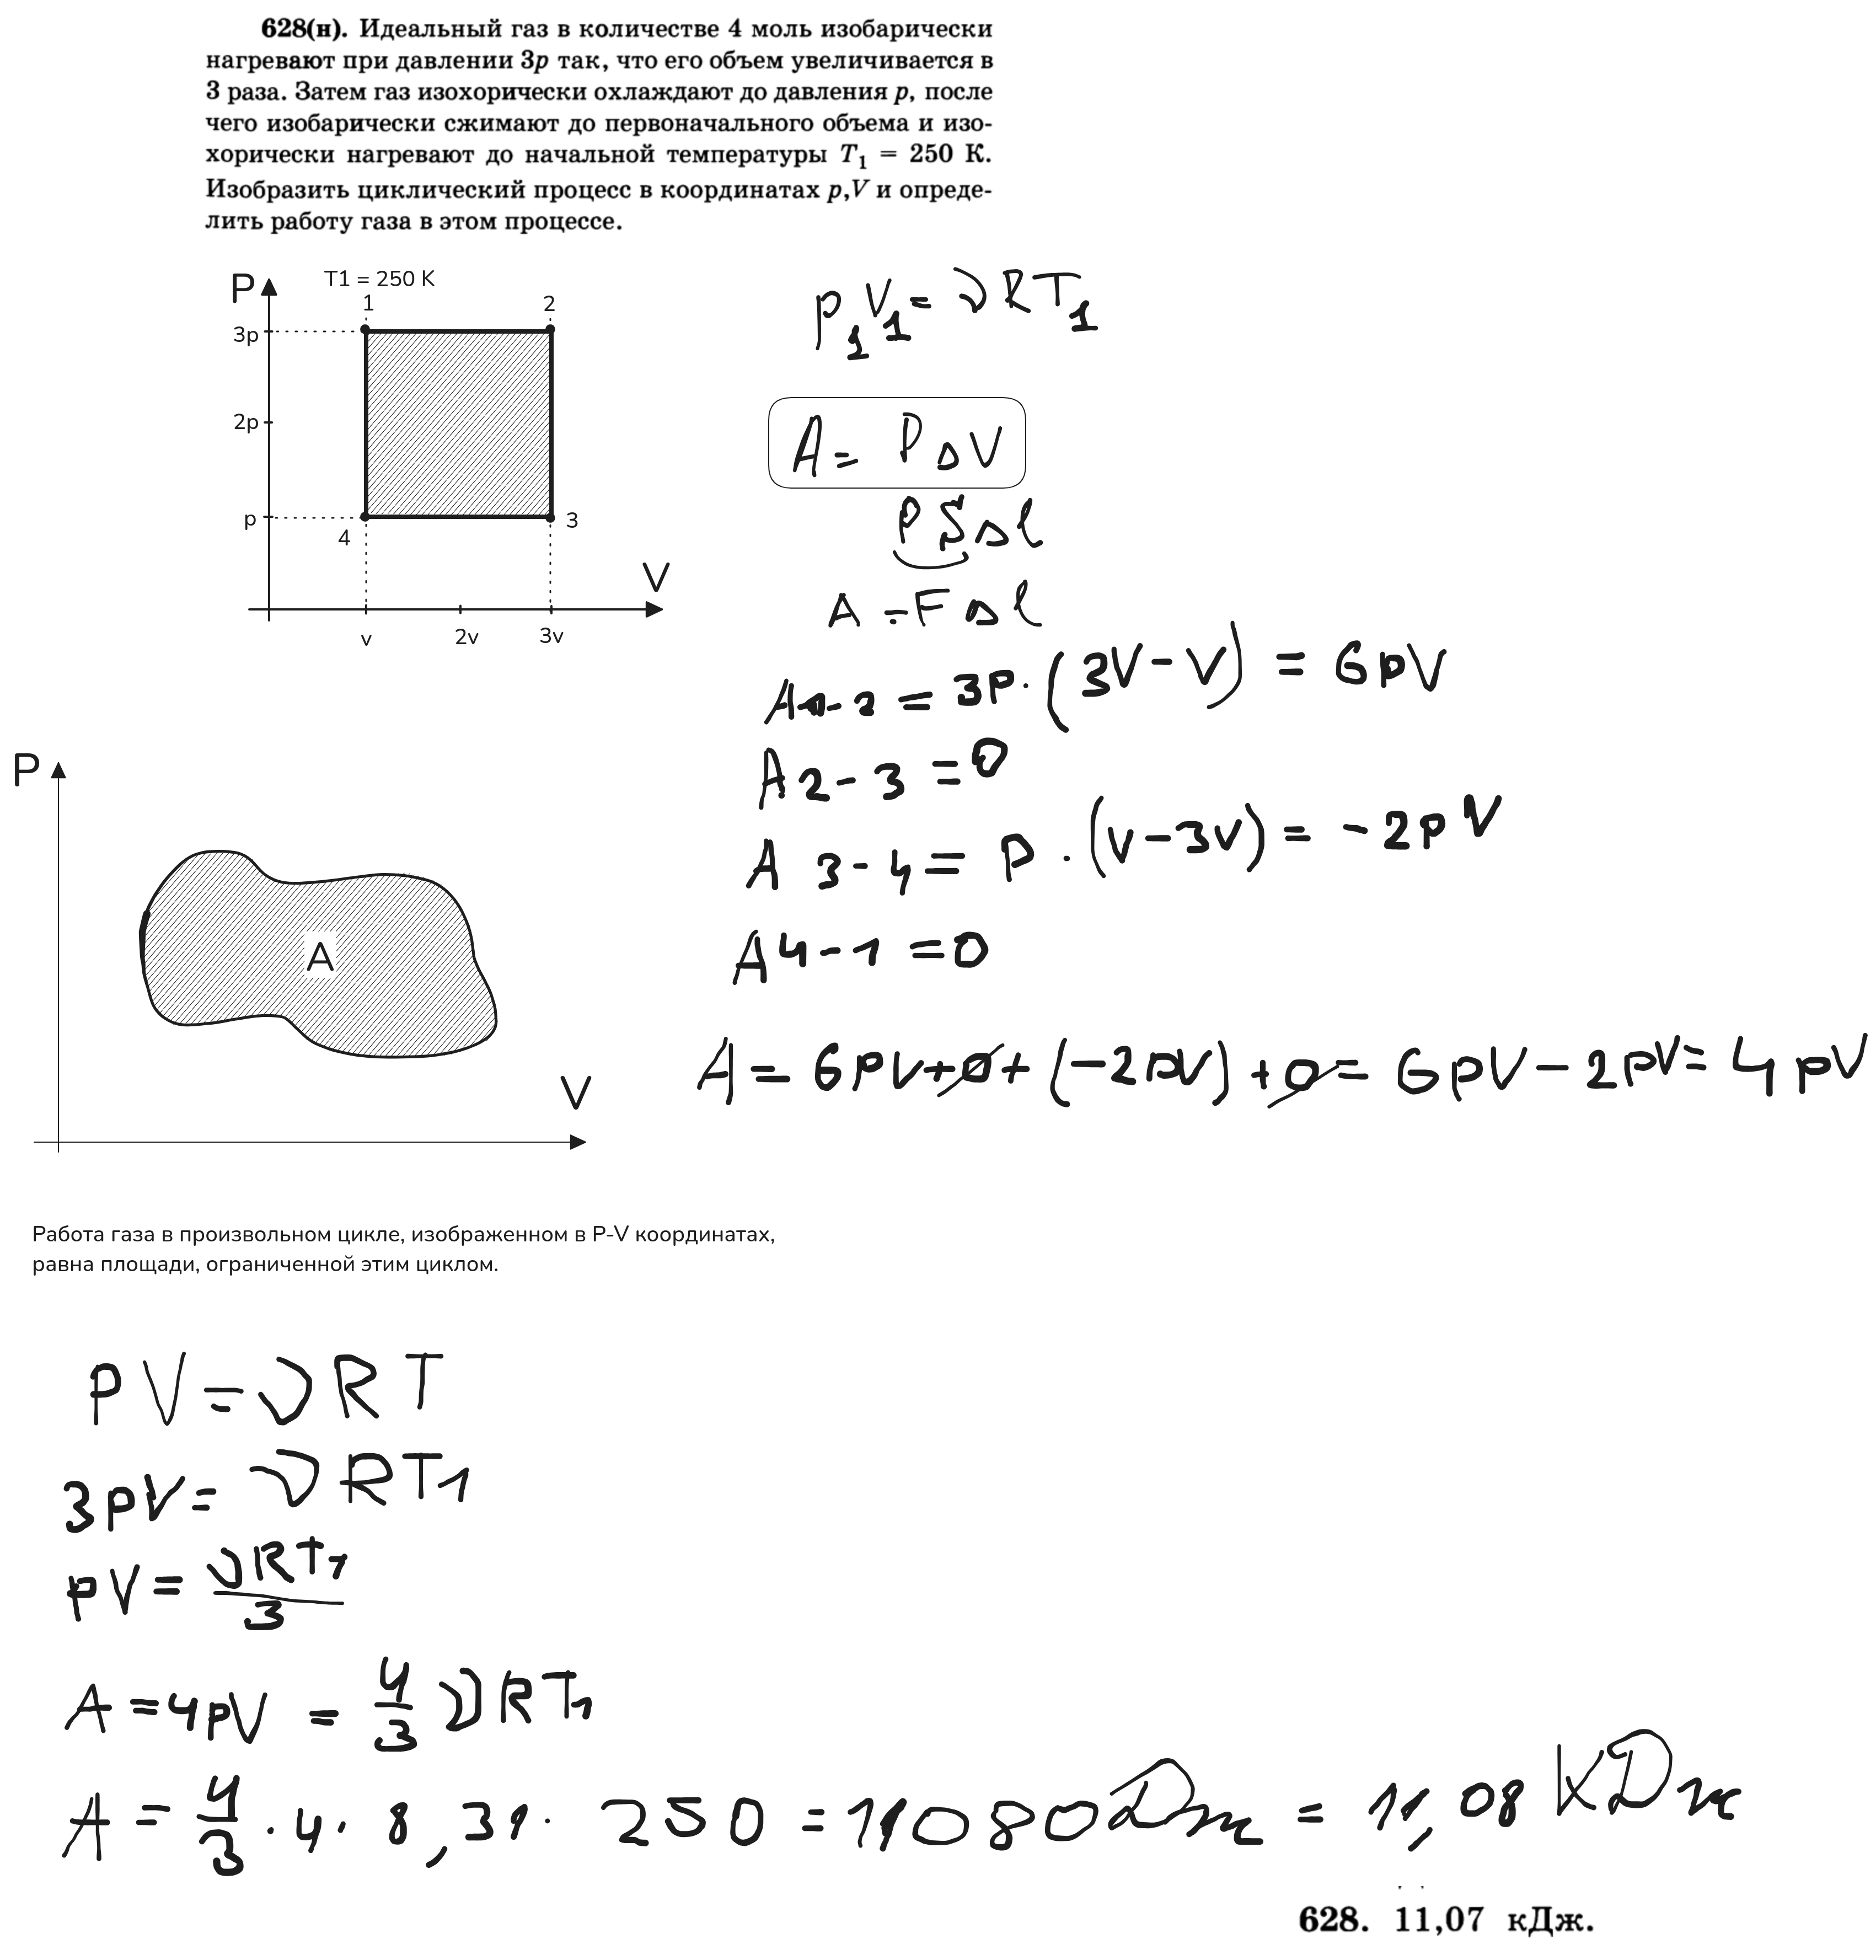 628(н). Идеальный газ в количестве 4 моль изобарически
нагревают при давлении 3p так, что его объем увеличивается в
3 раза. Затем газ изохорически охлаждают до давления p, после
чего изобарически сжимают до первоначального объема и изо-
хорически нагревают до начальной температуры T₁ = 250 К.
Изобразить циклический процесс в координатах p,V и опреде-
лить работу газа в этом процессе.
P
T1 = 250 K
1
2
3p
2p
p
4
3
V
v
2v
3v
p₁V₁ = νRT₁
A = PΔV
PSΔl
A = FΔl
A1-2 = 3p·(3V-V) = 6pV
A2-3 = 0
A3-4 = p·(V-3V) = -2pV
A4-1 = 0
A = 6pV+0+(-2pV)+0 = 6pV-2pV = 4pV
P
A
V
Работа газа в произвольном цикле, изображенном в P-V координатах,
равна площади, ограниченной этим циклом.
PV = νRT
3pV = νRT1
pV = νRT1/3
A = 4pV = 4/3 νRT1
A = 4/3 · 4 · 8,31 · 250 = 11080 Дж = 11,08 кДж
628. 11,07 кДж.